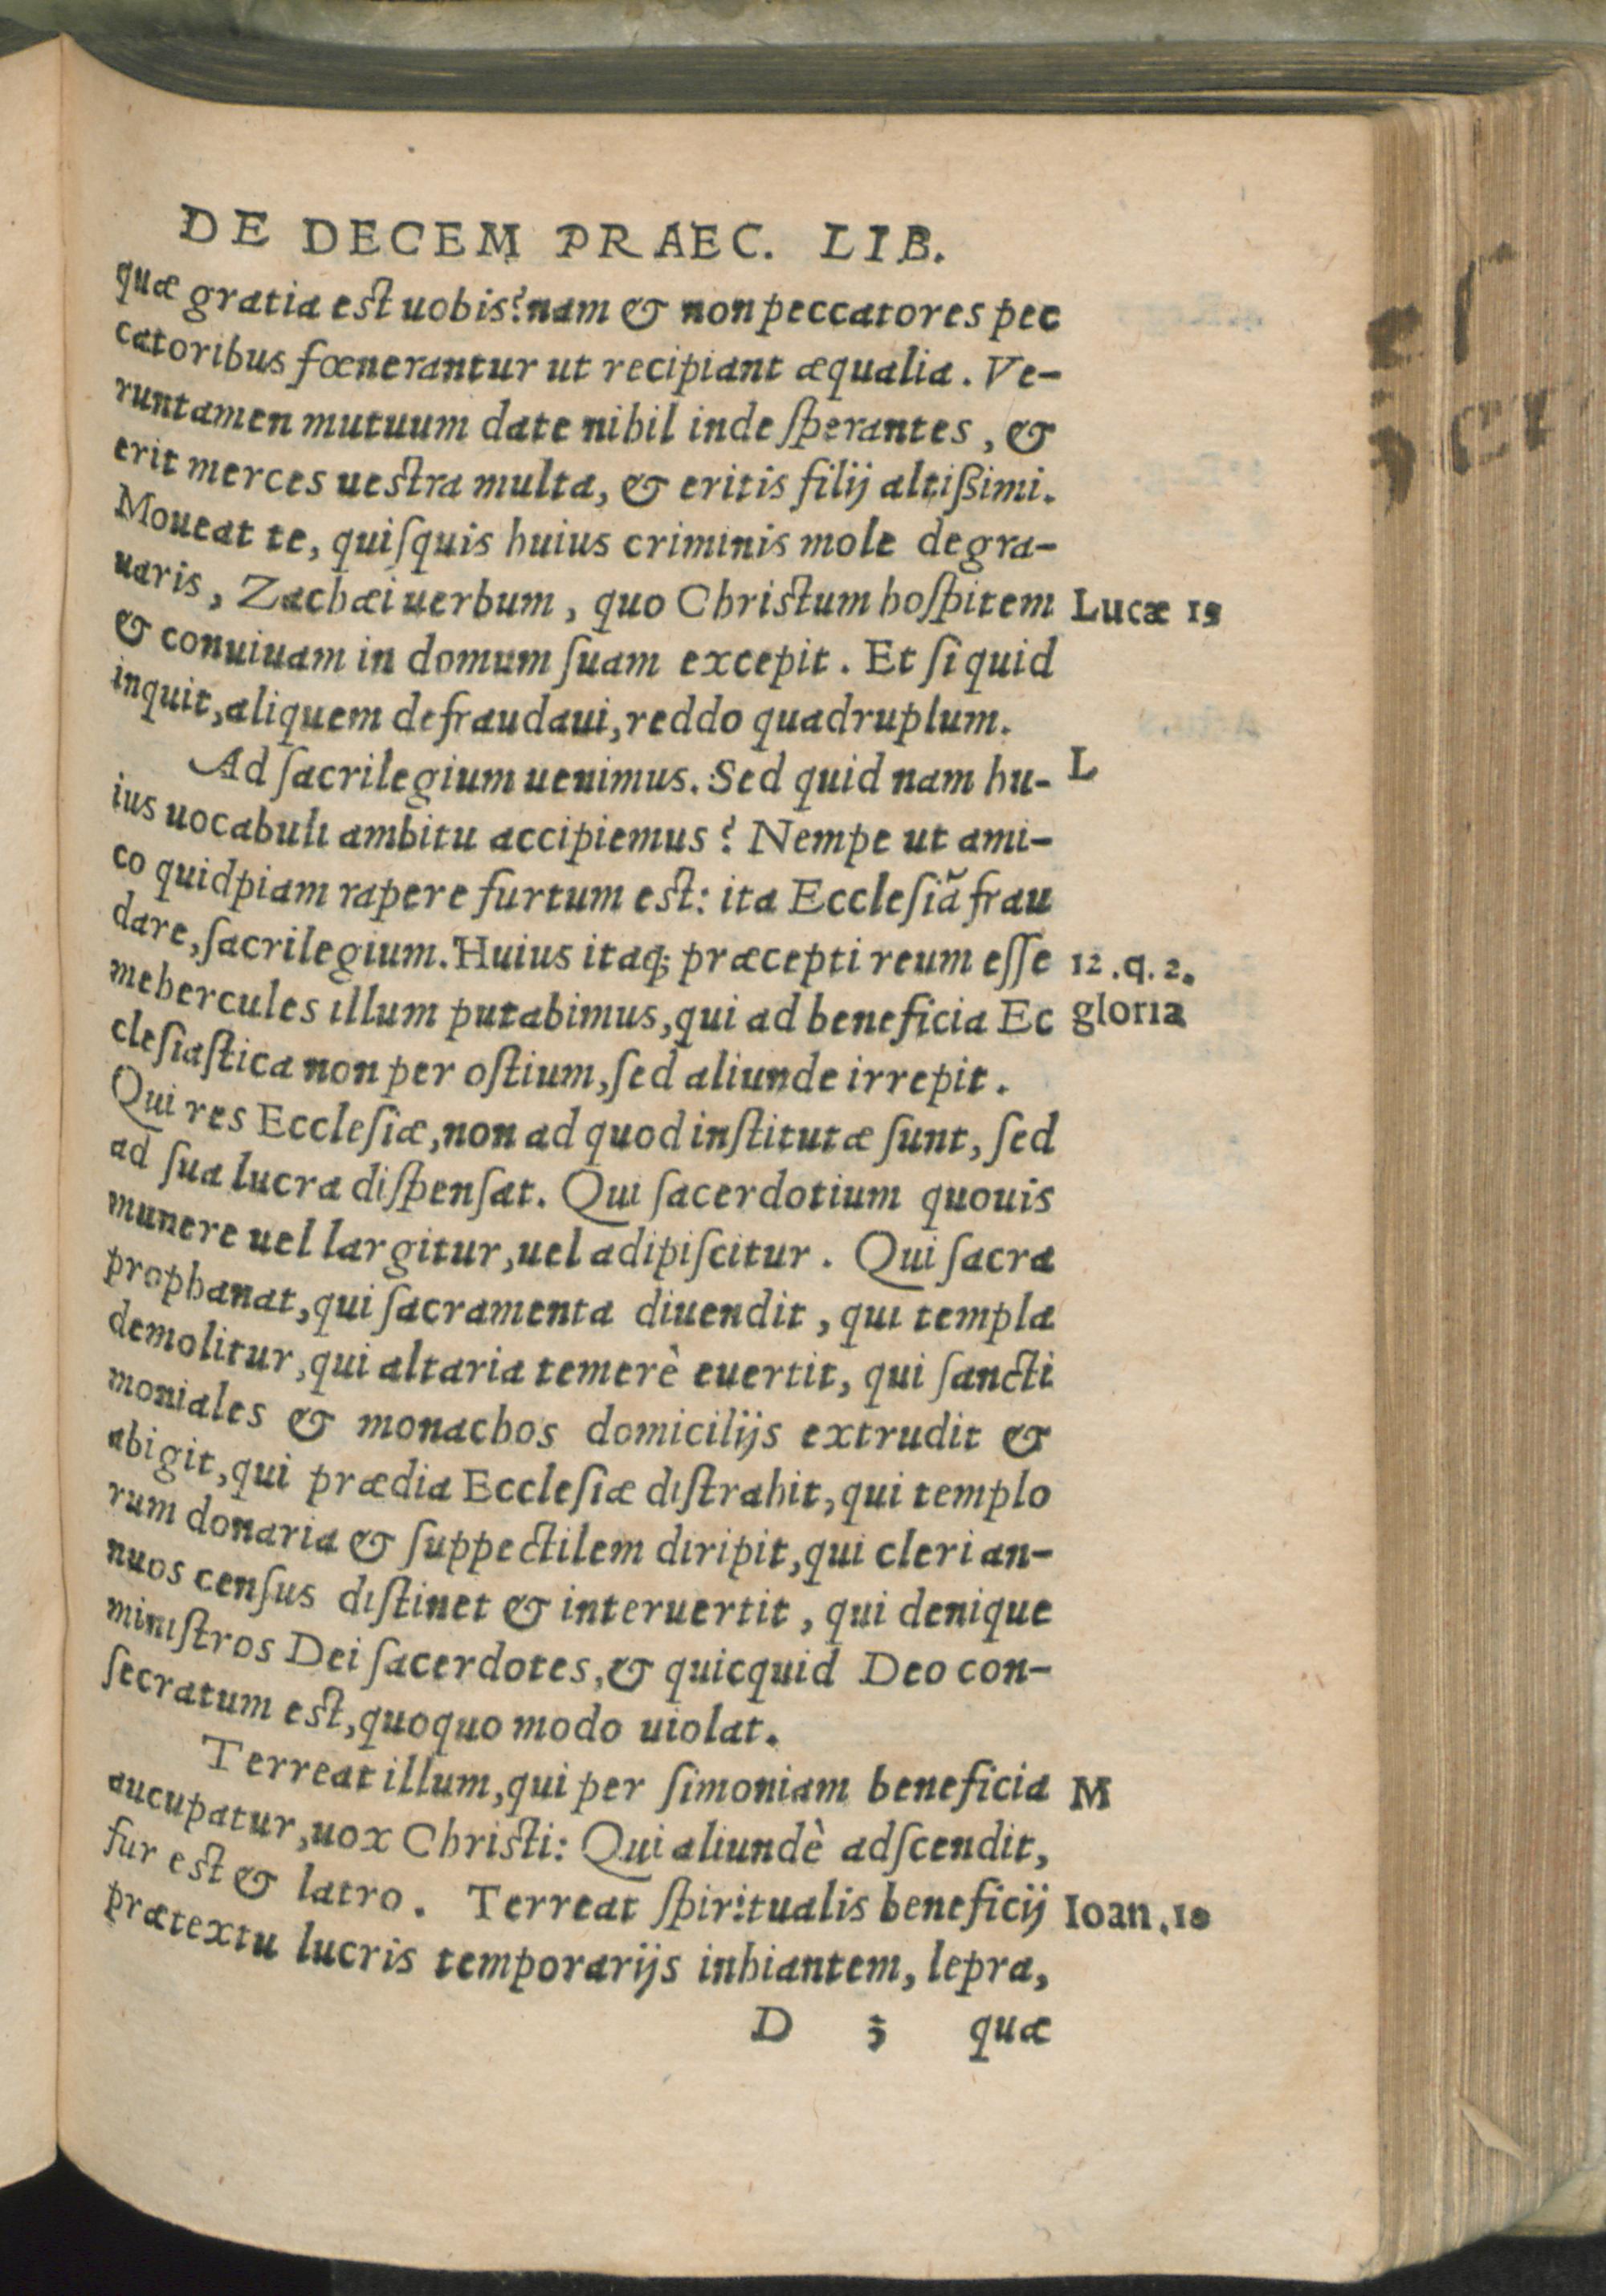 DE DECEM PRAEC. LIB.
quæ gratia est uobis? nam & non peccatores pec
catoribus fœnerantur ut recipiant æqualia. Ve-
runtamen mutuum date nihil inde ſperantes, &
erit merces uestra multa, & eritis filij altißimi.
Moueat te, quiſquis huius criminis mole degra-
uaris, Zachæi uerbum, quo Christum hoſpitem
Lucæ 19
& conuiuam in domum ſuam excepit. Et ſi quid
inquit, aliquem defraudaui, reddo quadruplum.
Ad ſacrilegium uenimus. Sed quid nam hu-
L
ius uocabuli ambitu accipiemus? Nempe ut ami-
co quidpiam rapere furtum est: ita Eccleſiã frau
dare, ſacrilegium. Huius itaq; præcepti reum eſſe
12.q.2.
mehercules illum putabimus, qui ad beneficia Ec
gloria
cleſiaſtica non per oſtium, ſed aliunde irrepit.
Qui res Eccleſiæ, non ad quod inſtitutæ ſunt, ſed
ad ſua lucra diſpenſat. Qui ſacerdotium quouis
munere uel largitur, uel adipiſcitur. Qui ſacra
prophanat, qui ſacramenta diuendit, qui templa
demolitur, qui altaria temerè euertit, qui ſancti
moniales & monachos domicilijs extrudit &
abigit, qui prædia Eccleſiæ diſtrahit, qui templo
rum donaria & ſuppectilem diripit, qui cleri an-
nuos cenſus diſtinet & interuertit, qui denique
miniſtros Dei ſacerdotes, & quicquid Deo con-
ſecratum est, quoquo modo uiolat.
Terreat illum, qui per ſimoniam beneficia
M
aucupatur, uox Christi: Qui aliundè adſcendit,
fur est & latro. Terreat ſpiritualis beneficij
Ioan.10
prætextu lucris temporarijs inhiantem, lepra,
D 3 quæ